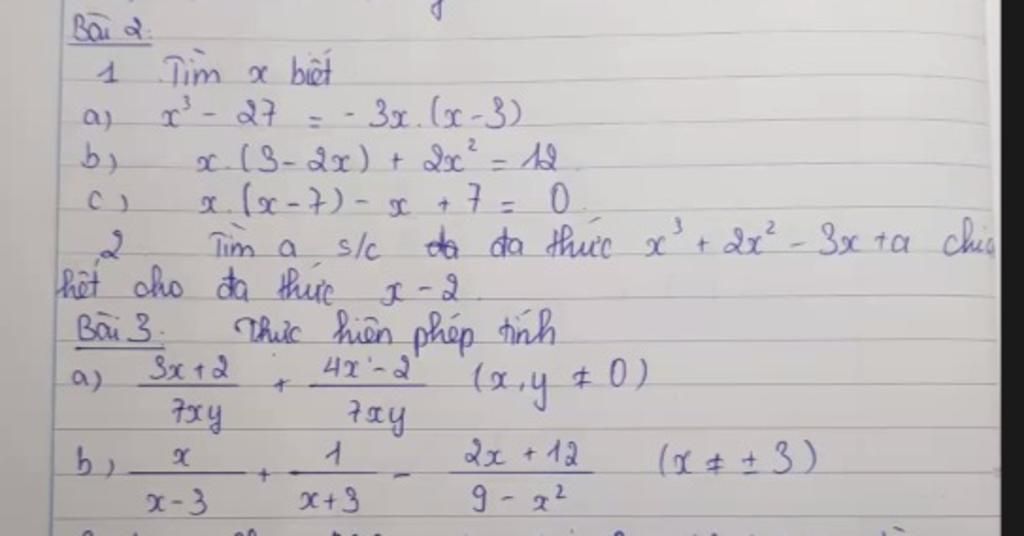 Bài 2:
1 Tìm x biết
a) x³ - 27 = - 3x.(x-3)
b) x.(3-2x) + 2x² = 12
c) x.(x-7) - x + 7 = 0
2 Tìm a s/c đa thức x³ + 2x² - 3x + a chia
hết cho đa thức x-2.
Bài 3. Thực hiện phép tính
a) (3x+2)/(7xy) + (4x-2)/(7xy) (x,y ≠ 0)
b) x/(x-3) + 1/(x+3) - (2x+12)/(9-x²) (x ≠ ±3)